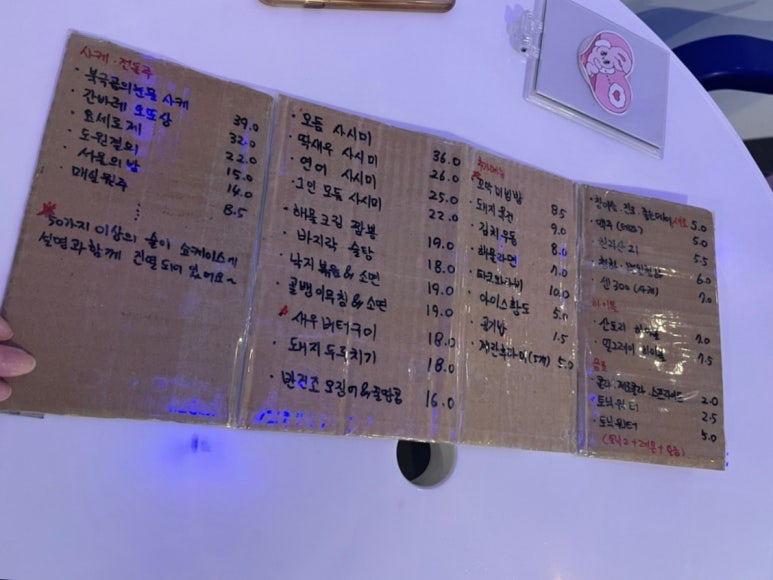 사케·전통주
· 북극곰의눈물 사케 39.0
· 간바레 오또상 32.0
· 요세로제 22.0
· 도원결의 15.0
· 서울의밤 14.0
매실원주 8.5
50가지 이상의 술이 쇼케이스에
설명과함께 진열되어 있어요~
· 모듬 사시미 36.0
· 딱새우 사시미 26.0
· 연어 사시미 25.0
· 1인 모듬 사시미 22.0
· 해물크림 짬뽕 19.0
· 바지락 술탕 18.0
· 낙지볶음&소면 19.0
· 골뱅이무침&소면 19.0
· 새우버터구이 18.0
· 돼지두루치기 18.0
· 반건조 오징어&땅콩 16.0
추가메뉴
꼬막비빔밥 8.5
· 돼지 9.0
· 김치우동 8.0
· 해물라면 7.0
· 타코와사비 10.0
· 아이스황도 5.0
· 공기밥 1.5
(5개) 5.0
5.0
· 맥주 5.0
· 한라산 21 5.5
· 청하 6.0
· 센 300 (사케) 7.0
하이볼
· 산토리 하이볼 7.0
하이볼 7.5
음료
· 콜라 제로콜라 스프라이트 2.0
· 토닉워터 2.5
· 토닉워터 5.0
(토닉2+레몬+얼음)